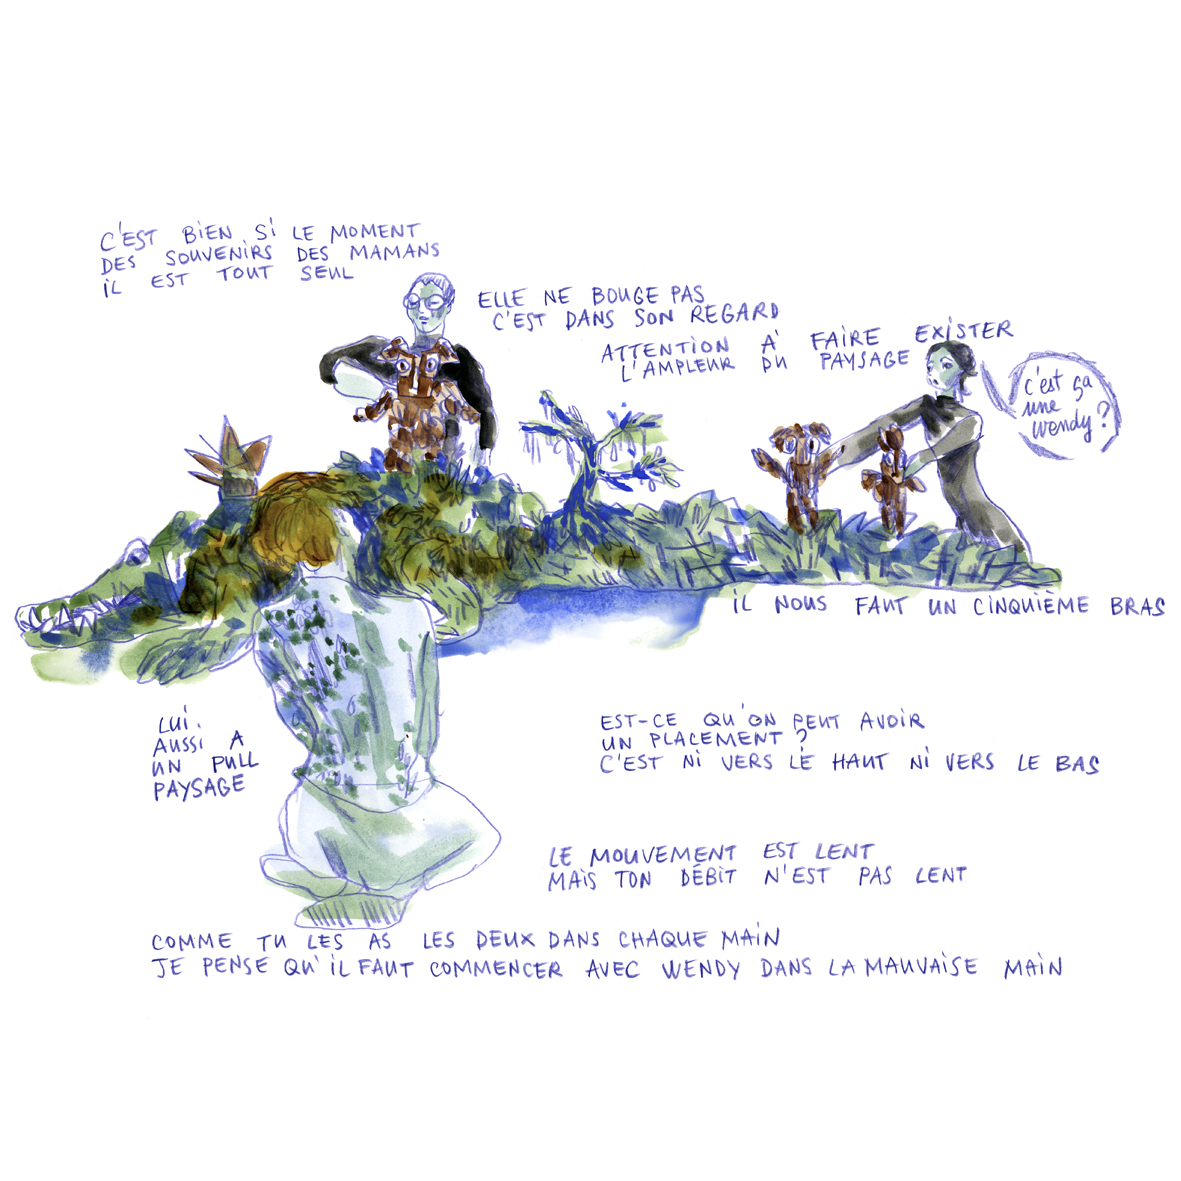 C'EST BIEN SI LE MOMENT
DES SOUVENIRS DES MAMANS
IL EST TOUT SEUL
ELLE NE BOUGE PAS
C'EST DANS SON REGARD
ATTENTION À FAIRE EXISTER
L'AMPLEUR DU PAYSAGE
c'est ça
une
wendy?
IL NOUS FAUT UN CINQUIÈME BRAS
LUI.
AUSSI A
UN PULL
PAYSAGE
EST-CE QU'ON PEUT AVOIR
UN PLACEMENT?
C'EST NI VERS LE HAUT NI VERS LE BAS
LE MOUVEMENT EST LENT
MAIS TON DÉBIT N'EST PAS LENT
COMME TU LES AS LES DEUX DANS CHAQUE MAIN
JE PENSE QU'IL FAUT COMMENCER AVEC WENDY DANS LA MAUVAISE MAIN